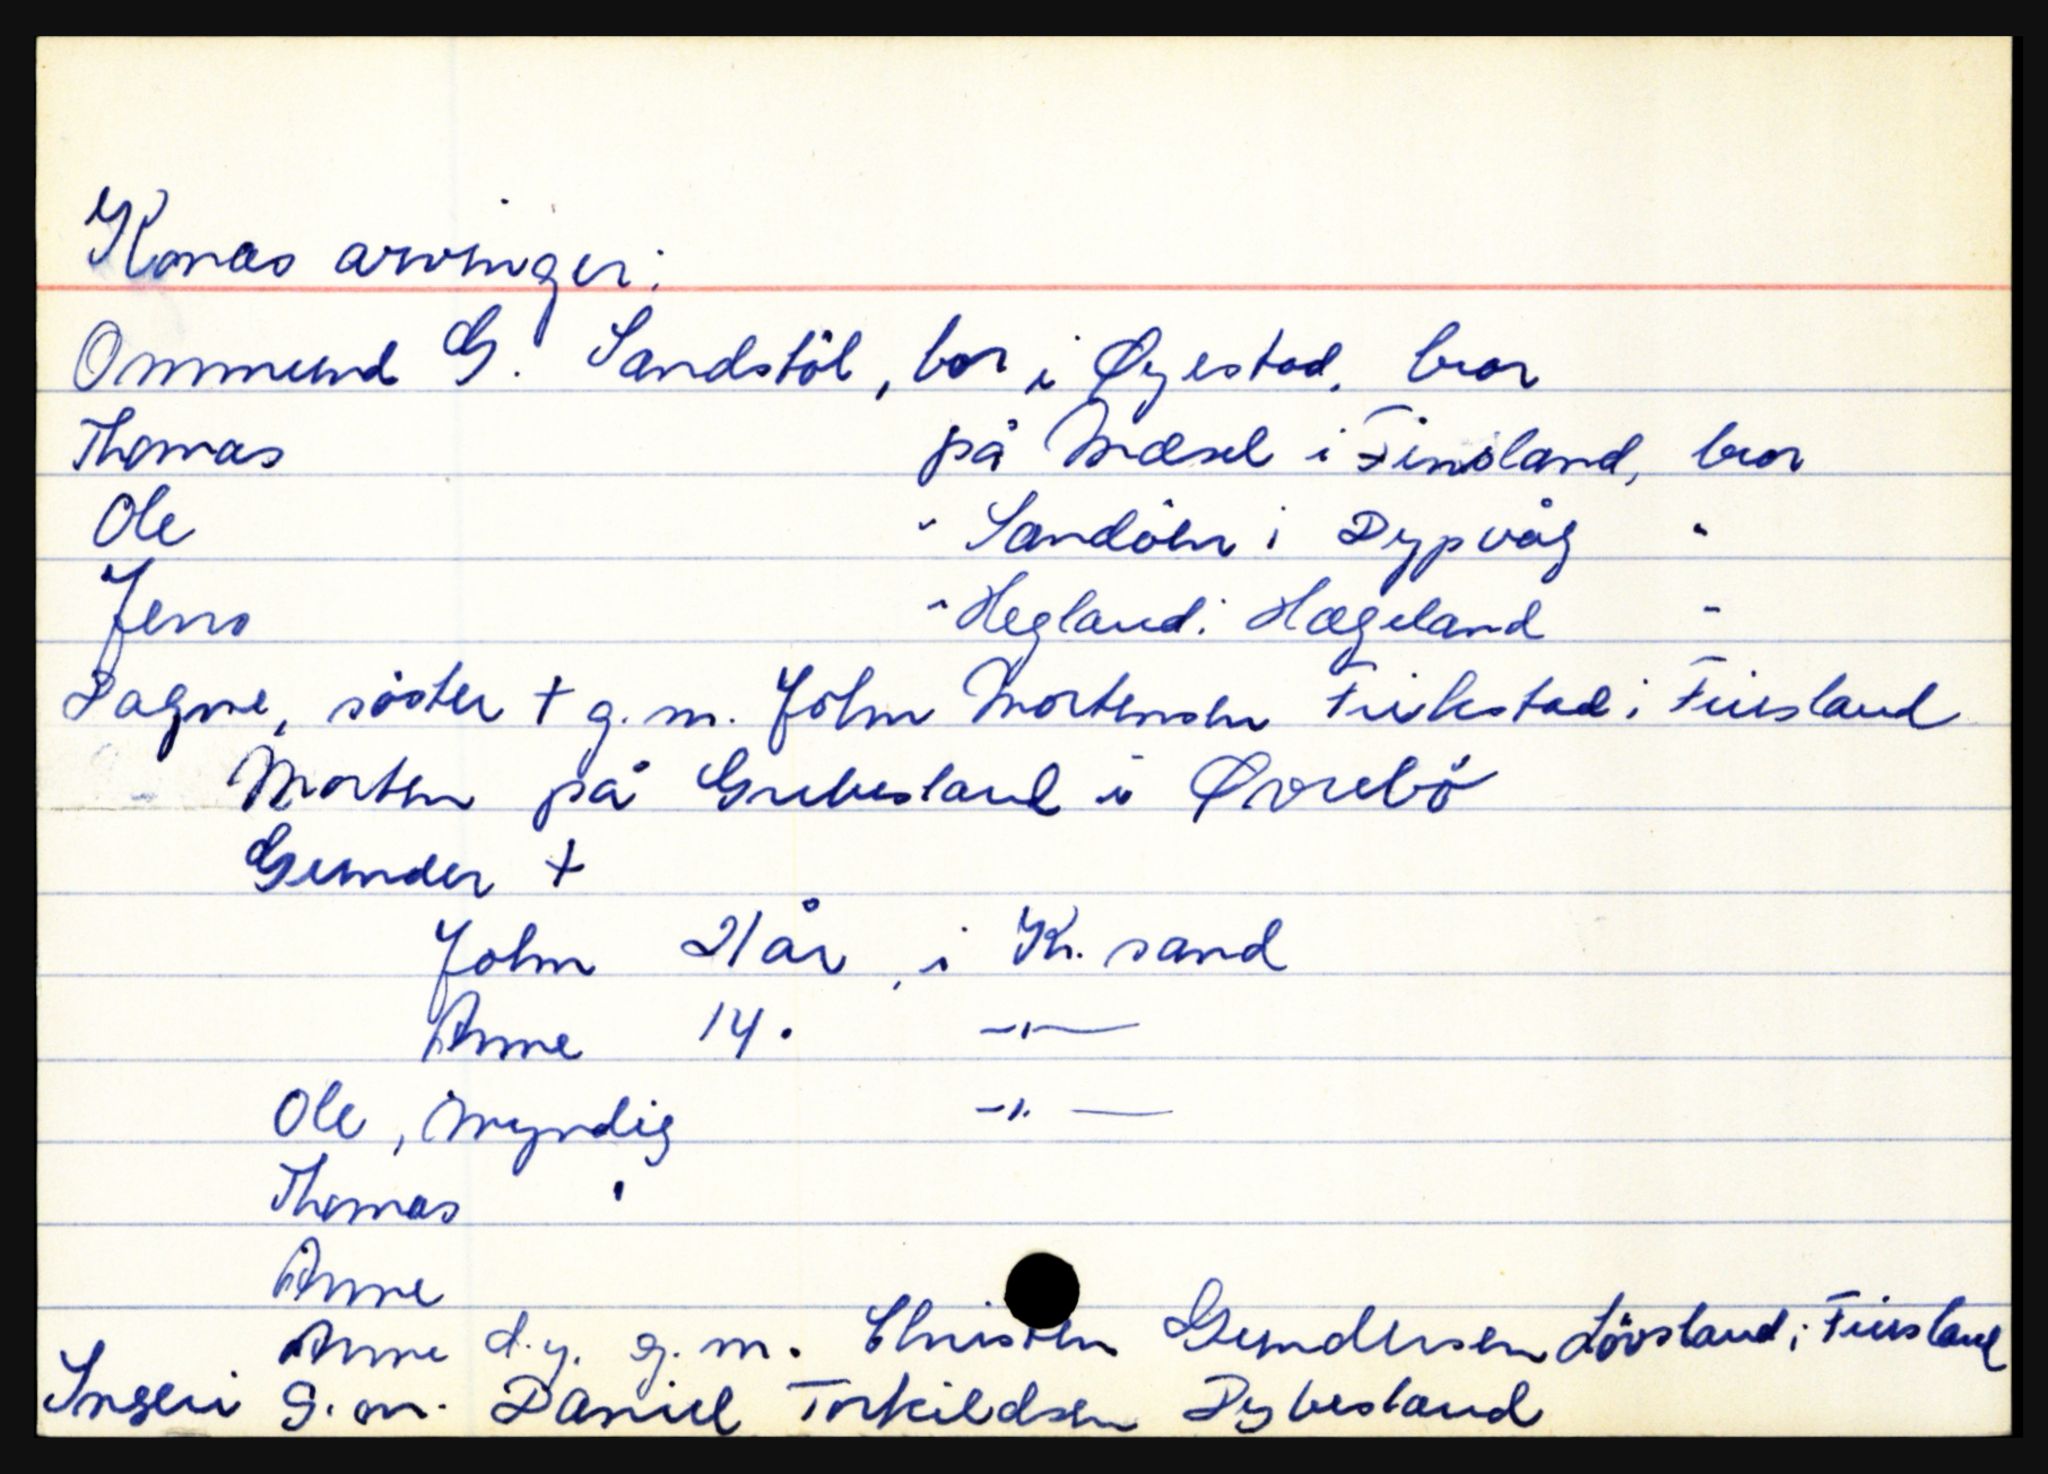 Konas arvinger:
Ommund G. Sandstöl, bor i Øyestad, bror
Thomas på Mæsel i Finsland, bror
Ole " Sandöen i Dypvåg "
Jens " Hegland i Hægeland "
Dagne, söster + g.m. John Mortensen Fuhstad i Finsland
Morten på Grubesland i Øvrebö
Gunder +
John 21 år, i Kr.sand
Anne 14 " —"—
Ole, myndig —"—
Thomas "
Anne
Anne d.y. g.m. Christen Gundersen Lövsland i Finsland
Ingeri g.m. Daniel Torkildsen Dybesland